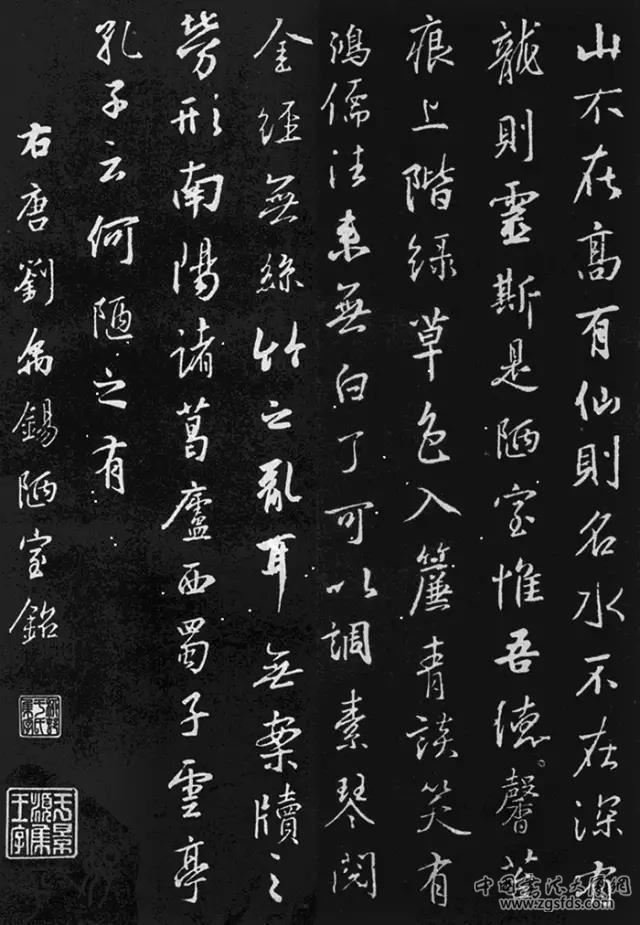 山不在高有仙則名水不在深有
龍則靈斯是陋室惟吾德馨苔
痕上階綠草色入簾青談笑有
鴻儒往来無白丁可以調素琴閱
金經無絲竹之亂耳無案牘之
勞形南陽諸葛廬西蜀子雲亭
孔子云何陋之有
右唐劉禹錫陋室銘
www.zgsfds.com